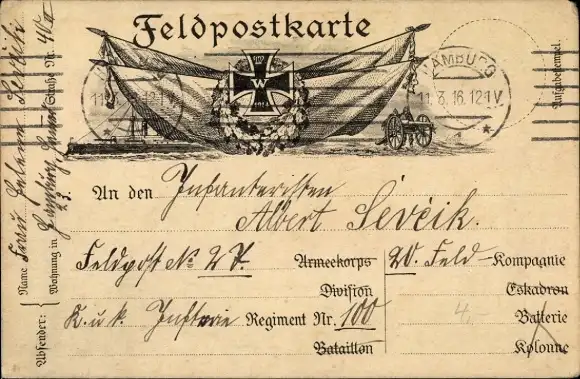 Feldpostkarte
W
1914
HAMBURG
11.3.16.12-1V.
Aufgabestempel.
An den Infanteristen
Albert Sevčik.
Feldpost No 27. Armeekorps 20. Feld-Kompagnie
Division Eskadron
K. u. k. Inftrie Regiment Nr. 100 4,- Batterie
Bataillon Kolonne
Absender:
Name Frau Helene
Wohnung in Hamburg, Straße Nr. 40
23.